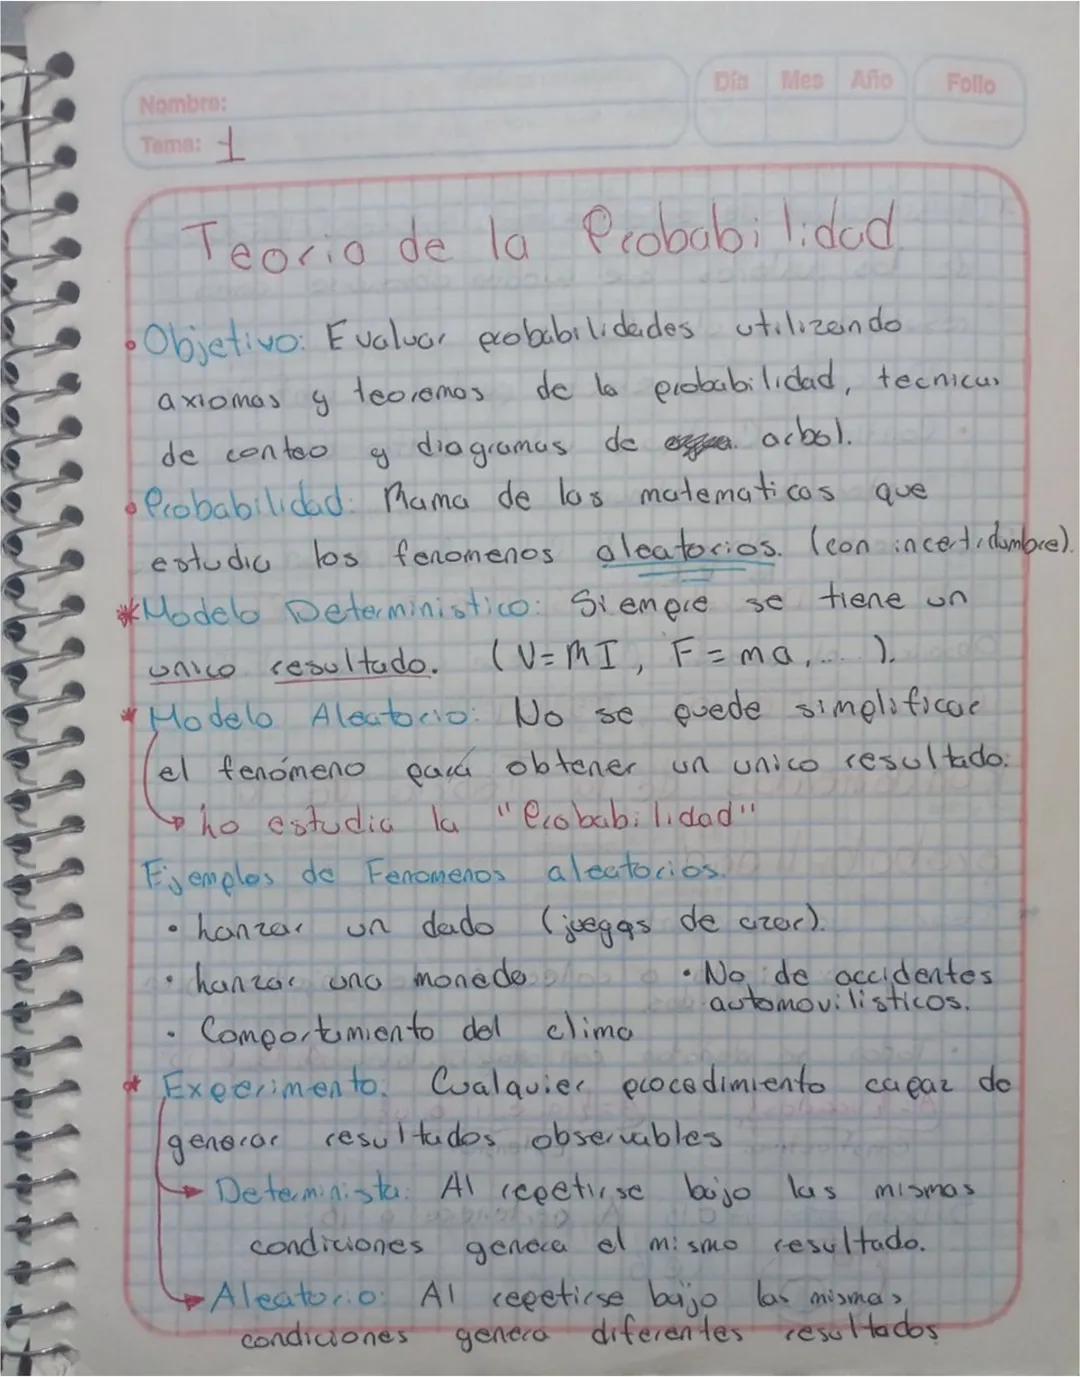 Día Mes Año Folio
Nombre:
Tema: 1
Teoria de la Probabilidad
• Objetivo: Evaluar probabilidades utilizando
axiomas y teoremas de la probabilidad, tecnicas
de conteo y diagramas de arbol.
• Probabilidad: Rama de las matematicas que
estudia los fenomenos aleatorios. (con incertidumbre).
* Modelo Deterministico: Siempre se tiene un
unico resultado. (V=RI, F=ma,... ).
* Modelo Aleatorio: No se puede simplificar
el fenómeno pará obtener un unico resultado.
→ Lo estudia la "Probabilidad"
Ejemplos de Fenomenos aleatorios.
• Lanzar un dado (juegos de azar).
• Lanzar una moneda • No. de accidentes
automovilisticos.
• Comportamiento del clima
* Experimento: Cualquier procedimiento capaz de
generar resultados observables
→ Determinista: Al repetirse bajo las mismas
condiciones genera el mismo resultado.
→ Aleatorio: Al repetirse bajo las mismas
condiciones genera diferentes resultados